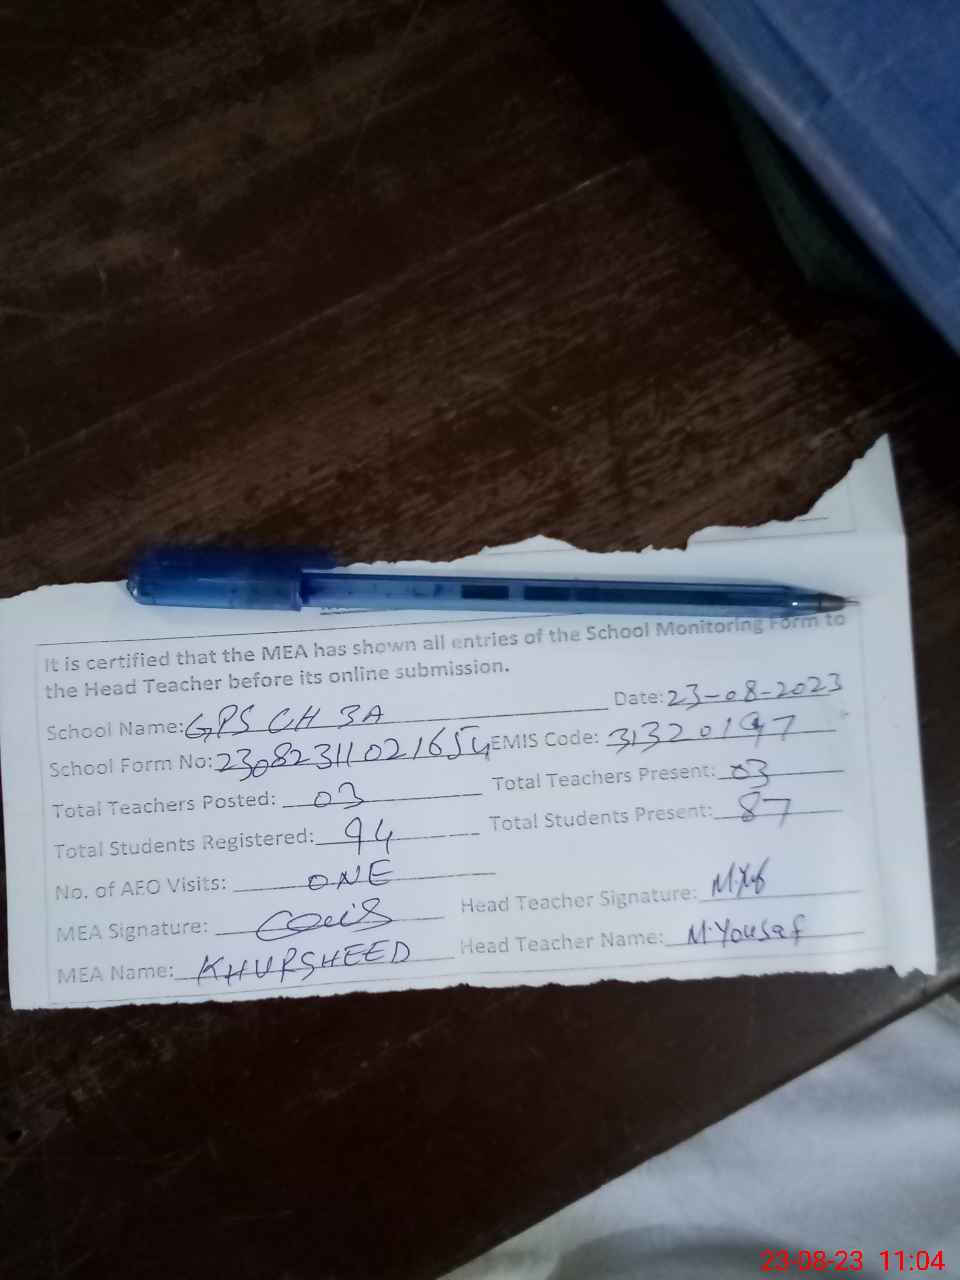 It is certified that the MEA has shown all entries of the School Monitoring Form to
the Head Teacher before its online submission.
School Name: GPS CH 3A Date: 23-08-2023
School Form No: 23082311021654 EMIS Code: 31320197
Total Teachers Posted: 03 Total Teachers Present: 03
Total Students Registered: 94 Total Students Present: 87
No. of AEO Visits: ONE
MEA Signature: Head Teacher Signature:
MEA Name: KHURSHEED Head Teacher Name: M.Yousaf
23-08-23 11:04